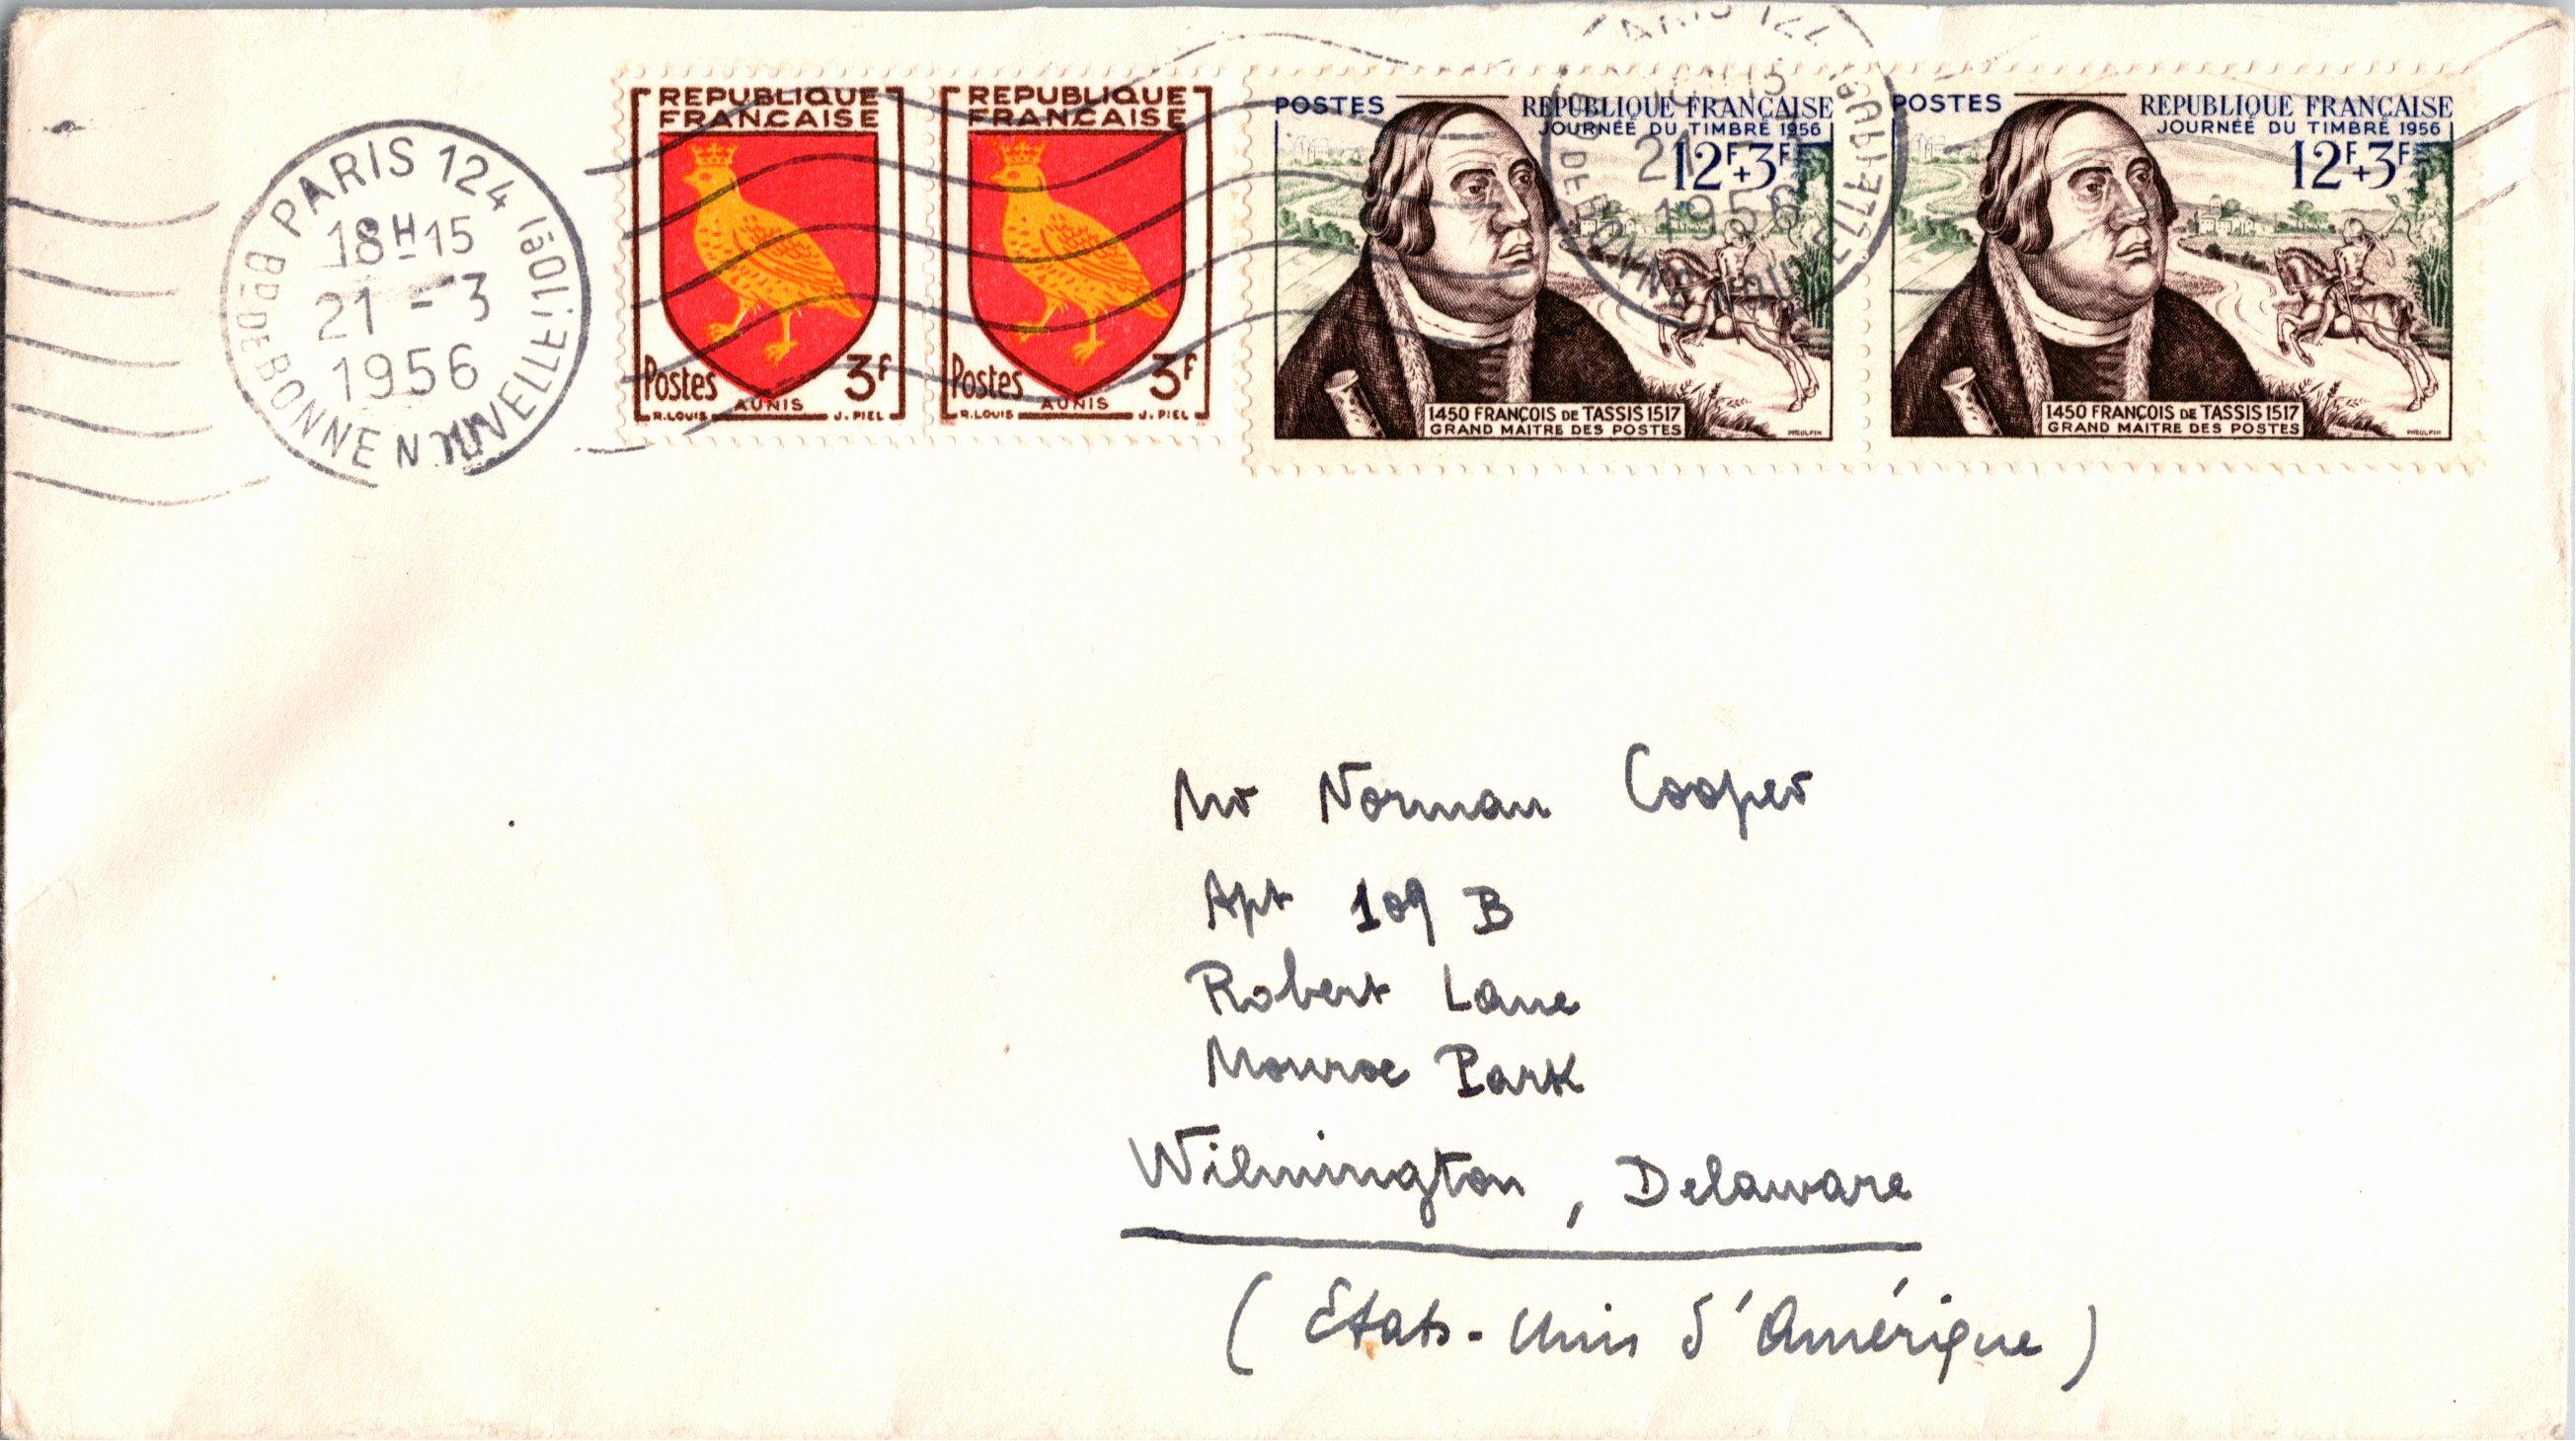 PARIS 124
18H15
21 - 3
1956
Bᴅ DE BONNE NOUVELLE (10ᵉ)
REPUBLIQUE
FRANCAISE
Postes 3F
AUNIS
R.LOUIS J.PIEL
REPUBLIQUE
FRANCAISE
Postes 3F
AUNIS
R.LOUIS J.PIEL
POSTES REPUBLIQUE FRANÇAISE
JOURNÉE DU TIMBRE 1956
12F+3F
1450 FRANÇOIS DE TASSIS 1517
GRAND MAITRE DES POSTES
PHEULPIN
POSTES REPUBLIQUE FRANÇAISE
JOURNÉE DU TIMBRE 1956
12F+3F
1450 FRANÇOIS DE TASSIS 1517
GRAND MAITRE DES POSTES
PHEULPIN
PARIS 124
21
1956
DE BONNE NOUVELLE
Mr Norman Cooper
Apt 109 B
Robert Lane
Monroe Park
Wilmington, Delaware
(Etats-Unis d'Amérique)